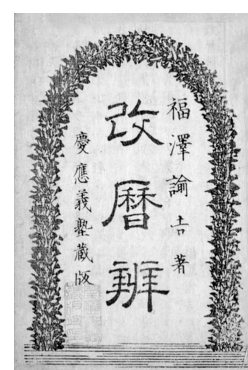 福澤諭吉著
改暦辨
慶應義塾藏版